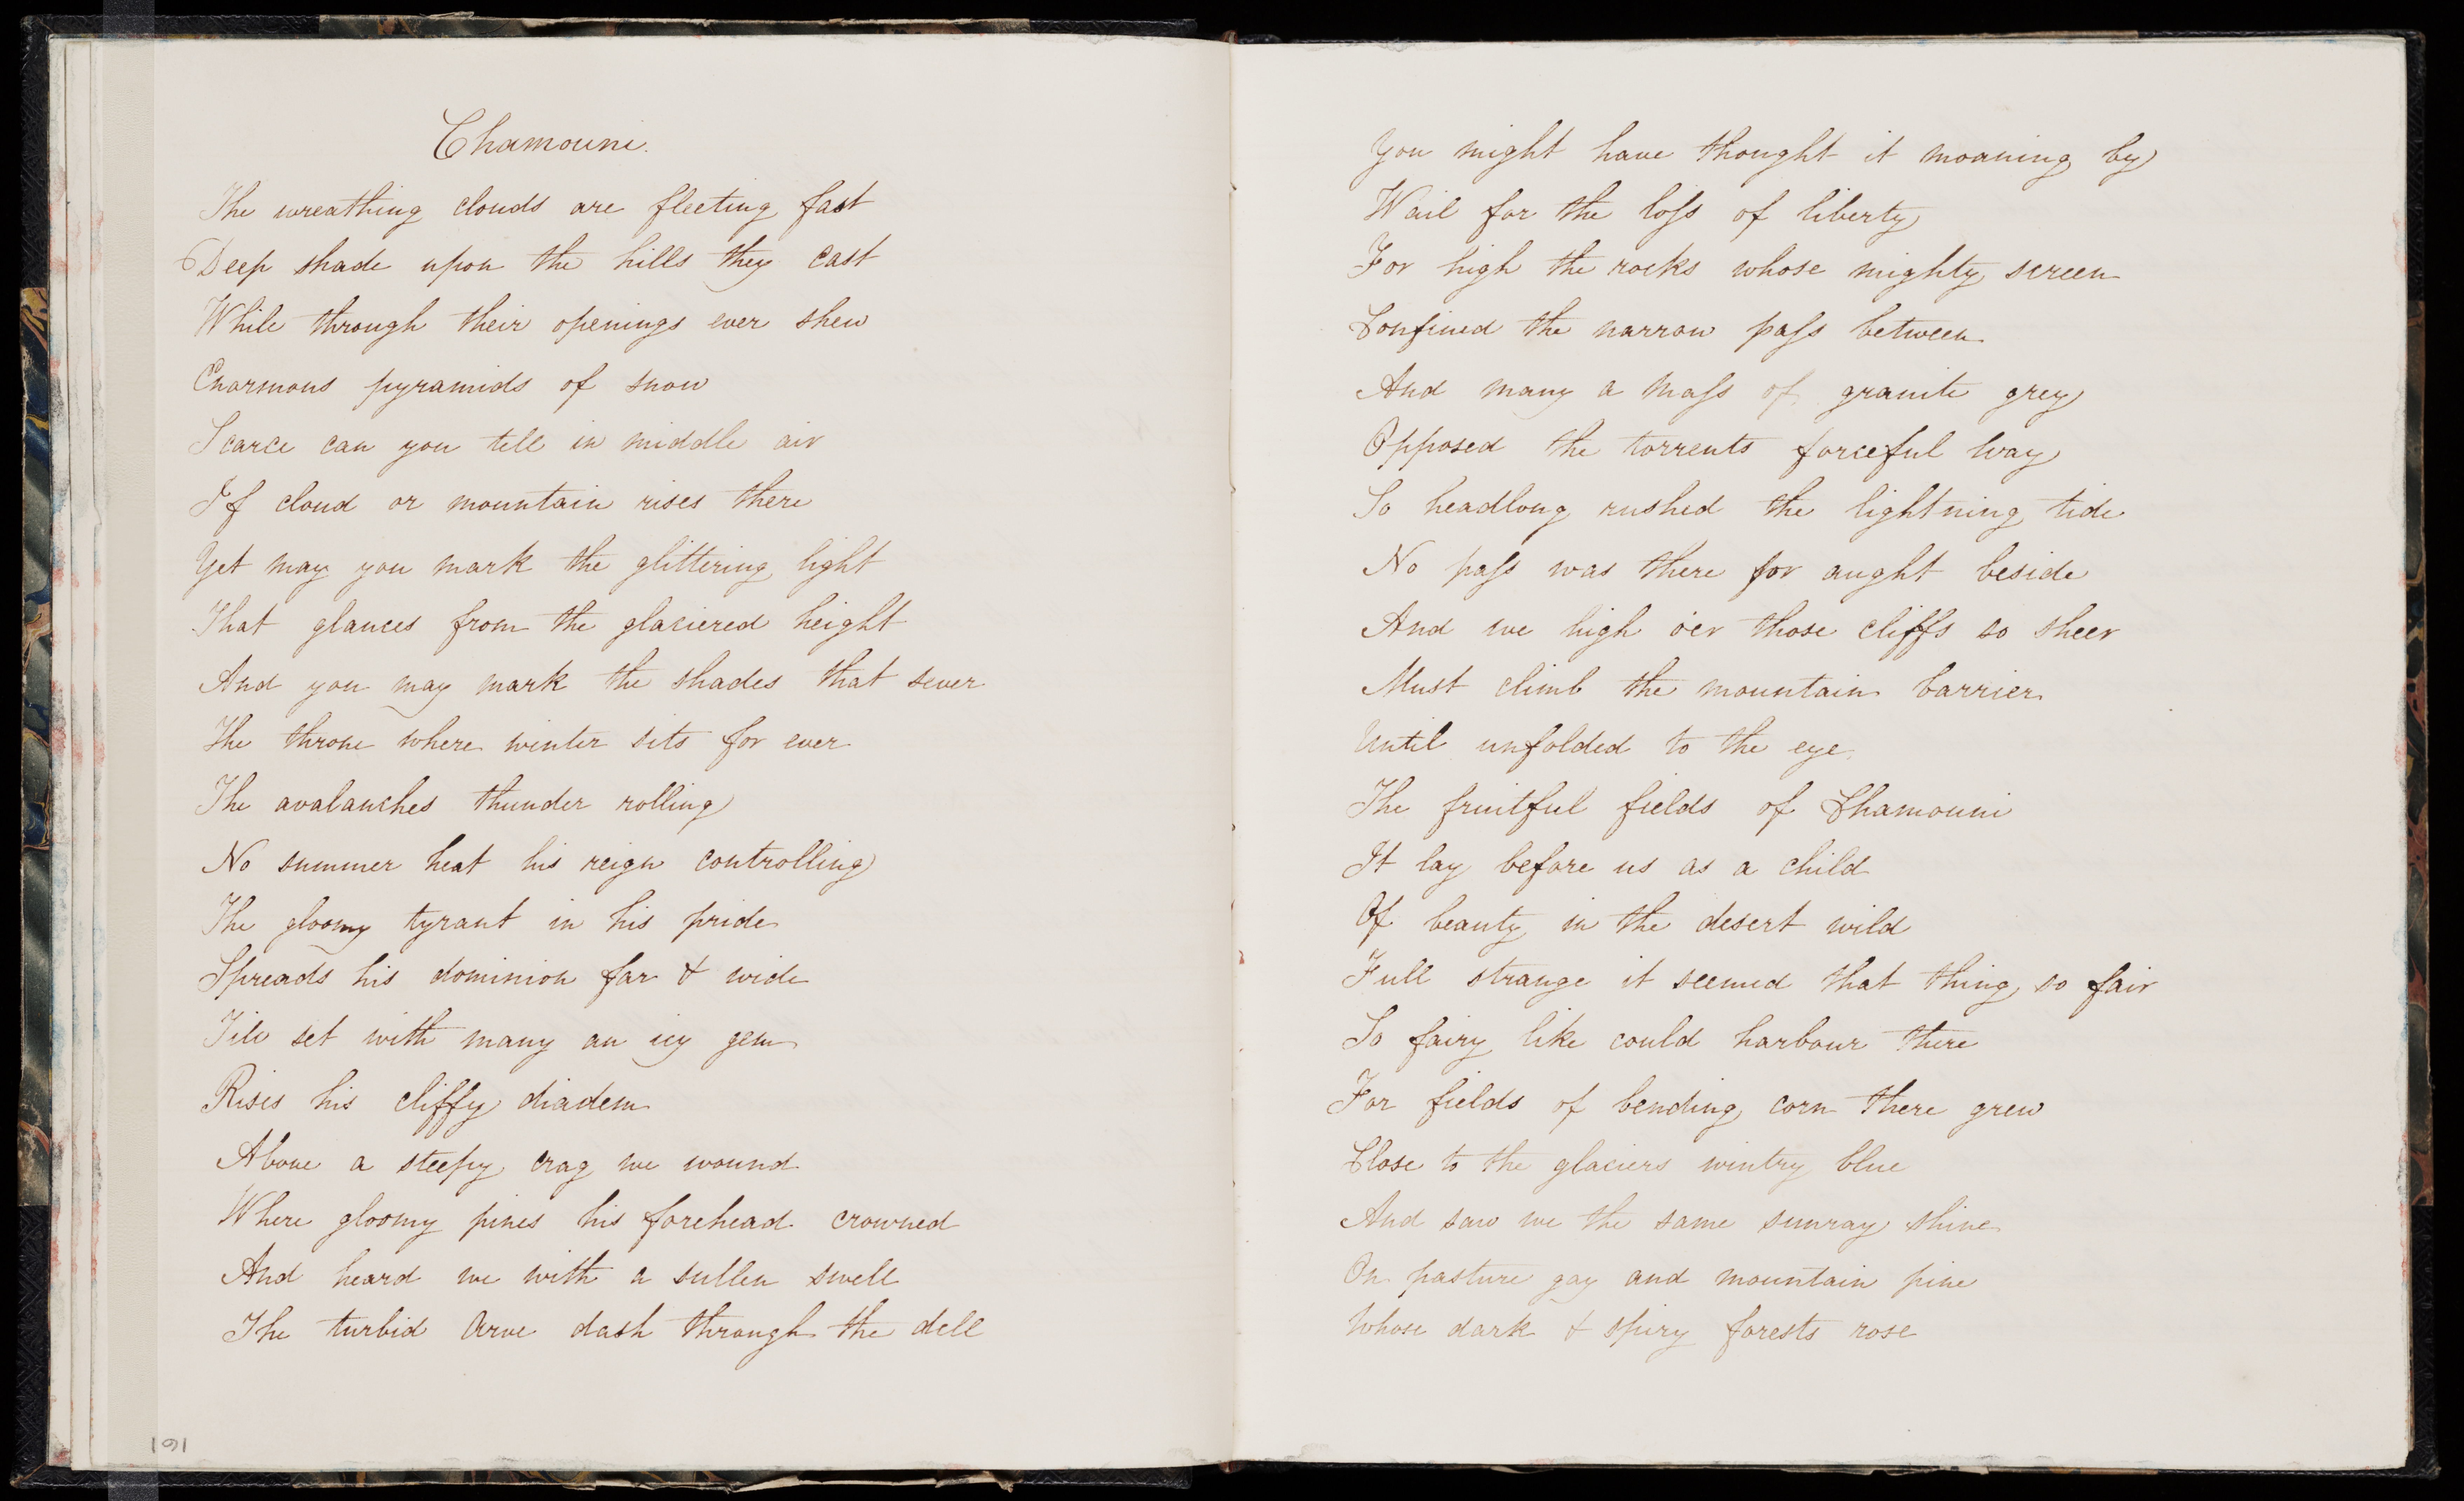 Chamouni.
The wreathing clouds are fleeting fast
Deep shade upon the hills they cast
While through their openings ever shew
Enormous pyramids of snow
Scarce can you tell in middle air
If cloud or mountain rises there
Yet may you mark the glittering light
That glances from the glaciered height
And you may mark the shades that sever
The throne where winter sits for ever
The avalanches thunder rolling
No summer heat his reign controlling
The gloomy tyrant in his pride
Spreads his dominion far & wide
Till set with many an icy gem
Rises his cliffy diadem
Above a steepy crag we wound
Where gloomy pines his forehead crowned
And heard we with a sullen swell
The turbid Arve dash through the dell
191
You might have thought it moaning by
Wail for the loſs of liberty
For high the rocks whose mighty screen
Confined the narrow paſs between
And many a maſs of granite grey
Opposed the torrents forceful way
So headlong rushed the lightning tide
No paſs was there for aught beside
And we high o'er those cliffs so sheer
Must climb the mountain barrier
Until unfolded to the eye
The fruitful fields of Chamouni
It lay before us as a child
Of beauty in the desert wild
Full strange it seemed that thing so fair
So fairy like could harbour there
For fields of bending corn there grew
Close to the glaciers wintry blue
And saw we the same sunray shine
On pasture gay and mountain pine
Whose dark & spiry forests rose